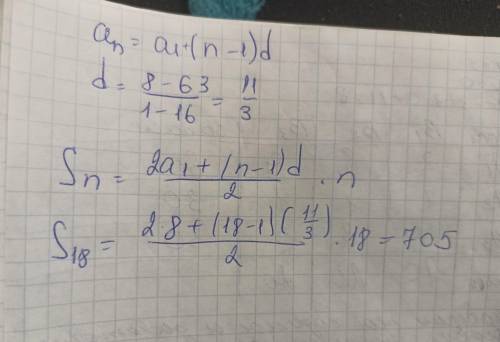 aₙ = a₁+(n-1)d
d = (8-63)/(1-16) = 11/3
Sn = (2a₁+(n-1)d)/2 · n
S₁₈ = (2 8+(18-1)(11/3))/2 · 18 = 705